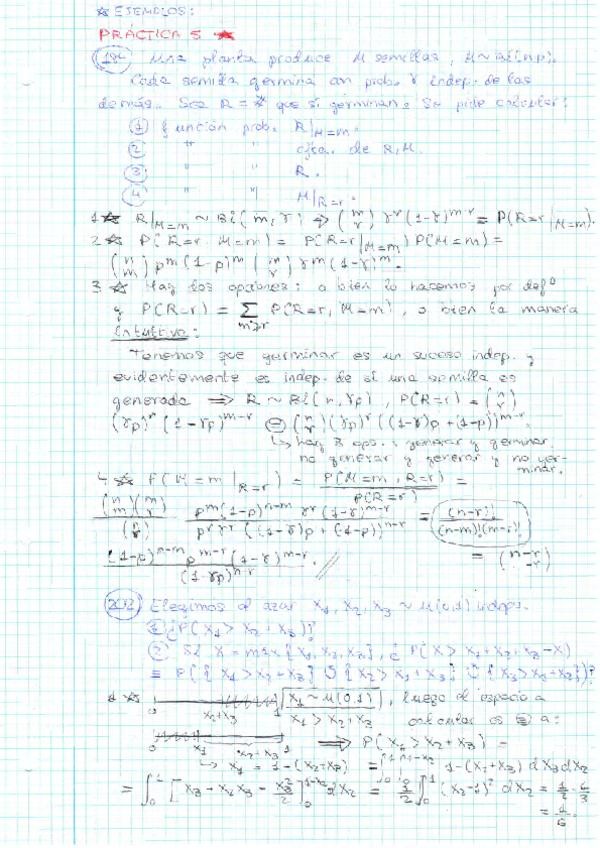 ★ EJEMPLOS:
PRÁCTICA 5 ★
18 Una planta produce M semillas, M~Bi(n,p).
Cada semilla germina con prob. γ indep. de las
demás. Sea R = # que sí germinan. Se pide calcular:
1 función prob. R|M=m.
2 " " cjta. de R,M.
3 " " R.
4 " " M|R=r.
1★ R|M=m ~ Bi(m,γ) ⇒ (m r) γ^r (1-γ)^{m-r} = P(R=r|M=m).
2★ P(R=r, M=m) = P(R=r|M=m) P(M=m) =
(n m) p^m (1-p)^m (m r) γ^m (1-γ)^m.
3★ Hay dos opciones: o bien lo hacemos por defº
y P(R=r) = Σ_{m≥r} P(R=r, M=m), o bien la manera
intuitiva:
Tenemos que germinar es un suceso indep. y
evidentemente es indep. de si una semilla es
generada ⇒ R ~ Bi(n, γp), P(R=r) = (n r)
(γp)^r (1-γp)^{m-r} = (n r)(γp)^r ((1-γ)p + (1-p))^{m-r}
↳ hay 3 opc.: generar y germinar,
no generar y generar y no germinar.
4★ P(M=m|R=r) = P(M=m, R=r) / P(R=r) =
(n m)(m r) / (n r) p^m (1-p)^{n-m} γ^r (1-γ)^{m-r} / p^r γ^r ((1-γ)p + (1-p))^{n-r} = (n-r)! / (n-m)!(m-r)!
(1-p)^{n-m} p^{m-r} (1-γ)^{m-r} / (1-γp)^{n-r} . // = (n-r -r)
202 Elegimos al azar X1, X2, X3 ~ U(0,1) indeps.
1 ¿P(X1 > X2 + X3)?
2 Si X = max{X1, X2, X3}, ¿P(X > X1+X2+X3-X)
≡ P({X1>X2+X3} ∪ {X2>X1+X3} ∪ {X3>X1+X2})?
1★ 0 X2+X3 1 X1~U(0,1) X1 > X2+X3, luego el espacio a
calcular es a:
0 X1 X2+X3 1 ⇒ P(X1 > X2+X3) =
↳ X1 = 1-(X2+X3) = ∫_0^1 ∫_0^{1-X2} 1-(X2+X3) dX3 dX2
= ∫_0^1 [X3 - X2X3 - X3²/2]_0^{1-X2} dX2 = 1/2 ∫_0^1 (X2-1)² dX2 = 1/2 · 1/3
= 1/6.